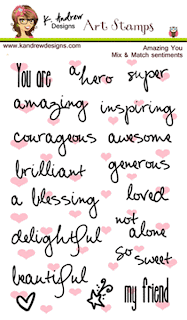 K. Andrew
Designs
Art Stamps
www.kandrewdesigns.com
Amazing You
Mix & Match sentiments
You are a hero super
amazing inspiring
courageous awesome
brilliant generous
a blessing loved
not alone
delightful so sweet
beautiful my friend